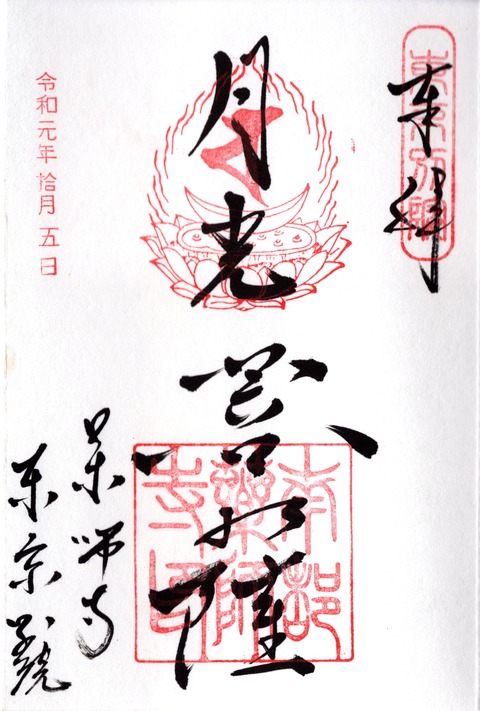 奉拝
東京別院
月光
菩薩
南都
薬師
寺印
薬師寺
東京別院
令和元年拾月五日